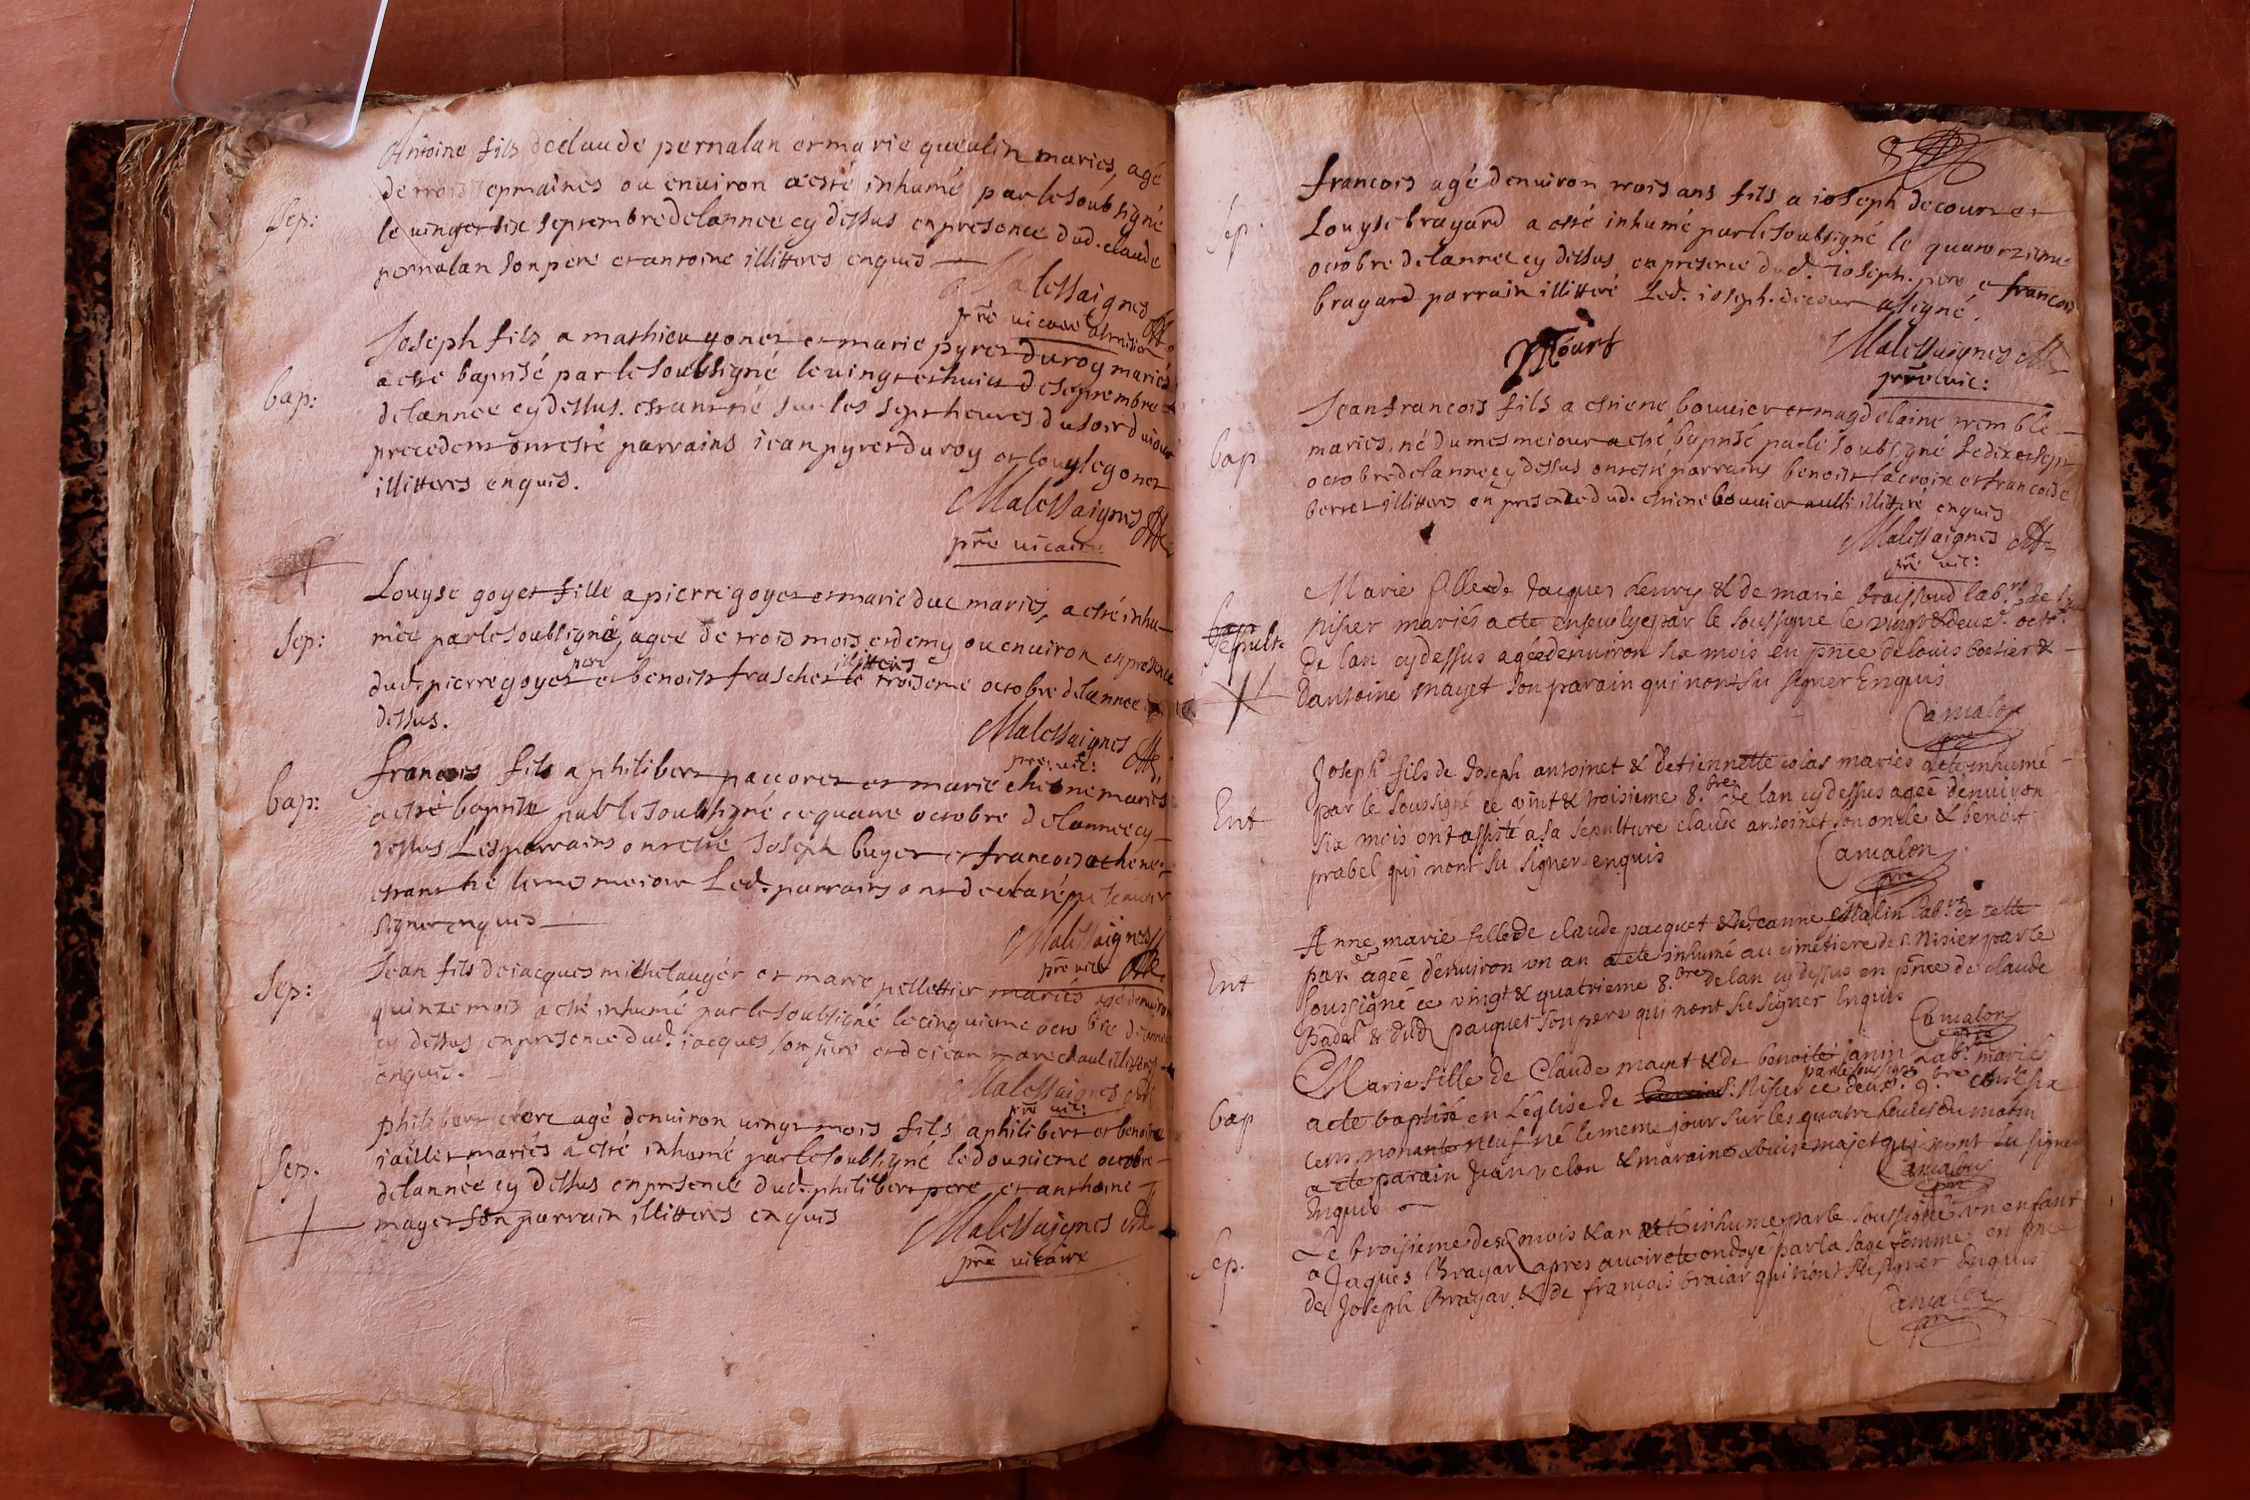 Antoine fils de claude pernalan et marie queulin mariés, agé
de trois sepmaines ou environ a esté inhumé par le soubsigné
Sep:
le vingt et six septembre de lannee cy dessus en presence dud. claude
pernalan son pere et antoine illitteres enquis
Malessaignes
pre vicaire
Joseph fils a mathieu gonet et marie pyret duroy mariés
Bap:
a esté baptisé par le soubsigné le vingt et huict de septembre
de lannee cy dessus. estant né sur les sept heures du soir du iour
precedent ont esté parrains iean pyret duroy et louyse gonet
illitteres enquis.
Malessaignes
pre vicaire
Louyse goyet fille a pierre goyet et marie duc mariés, a esté inhu-
Sep:
mée par le soubsigné, agee de trois mois et demy ou environ en presence
dud. pierre goyet pere et benoist frascher illitteres le troisieme octobre de lannee cy
dessus.
Malessaignes
pre. vic:
francois fils a philibert paccoret et marie chione mariés
Bap:
a esté baptise par le soubsigné ce quatre octobre de lannee cy
dessus Les parrains ont esté Joseph buyet et francoise thenet
estant né le mesme iour Led. parrains ont declaré ne scavoir
signer enquis
Malessaignes
pre vic
Jean fils de iacques michelauger et marie pellettier mariés agé denviron
Sep:
quinze mois a esté inhumé par le soubsigné le cinquieme octobre de lannee
cy dessus en presence dud. iacques son pere et de iean marechaul illitteres
enquis.
Malessaignes
pre vic:
philibert clerc agé denviron vingt mois fils a philibert et benoite
Sep.
iaillet mariés a esté inhumé par le soubsigné le douzieme octobre
de lannée cy dessus en presence dud. philibert pere et anthoine
mayet son parrain illitteres enquis
Malessaignes
pre vicaire
francois agé denviron trois ans fils a ioseph decour et
Sep.
Louyse brayard a esté inhumé par le soubsigné le quatorzieme
octobre de lannee cy dessus en presence dud. Ioseph. pere et francois
brayard parrain illitteré Led. ioseph. decour a signé.
Malessaignes
pre vic:
Jean francois fils a estiene bouvier et magdelaine tremble
Bap
mariés, né du mesme iour a esté baptisé par le soubsigné le dix et sept
octobre de lannee cy dessus ont esté parrains benoist lacroix et francoise
berret illitteres en presence dud. estiene bouvier aussi illitteré enquis
Malessaignes
pre vic:
Marie fille de Jacques henry & de marie braissoud lab.rs de S.
Sepult
nisier mariés a ete ensevelye par le soussigne le vingt & deux.e octo.e
de lan cy dessus agée denviron six mois en pnce de louis bolier &
dantoine mayet son parain qui nont su signer Enquis
Camalon
pre
Joseph fils de Joseph antoinet & detiennette colas mariés a ete inhumé
Ent
par le soussigné ce vint & troisieme 8.bre de lan cy dessus ageé denviron
six mois ont assisté a sa sepulture claude antoinet son oncle & benoit
prabel qui nont su signer enquis
Camalon
pre
Anne marie fille de claude pacquet & de Jeanne Malin lab.rs de cette
Ent
par. ageé denviron un an a ete inhumé au cimetiere de S. Nisier par le
soussigné ce vingt & quatrieme 8.bre de lan cy dessus en pnce de claude
Badal & dud. pacquet son pere qui nont su signer Enquis
Camalon
pre
Marie fille de Claude mayet & de benoite Janin Lab.rs mariés
Bap
a ete baptisé en Léglise de S. Nisier par le soussigné ce deux.e 9.bre mil six
cens nonante neuf né le meme jour sur les quatre heures du matin
a ete parain Jean velon & maraine Louise majet qui nont su signer
Enquis
Camalon
pre
Le troisieme desd. mois & an a ete inhume par le soussigné un enfant
Sep.
a Jaques Brayar apres avoir ete ondoyé par la sage femme en pnce
de Joseph Brayar & de francois braiar qui nont su signer Enquis
Camalon
pre